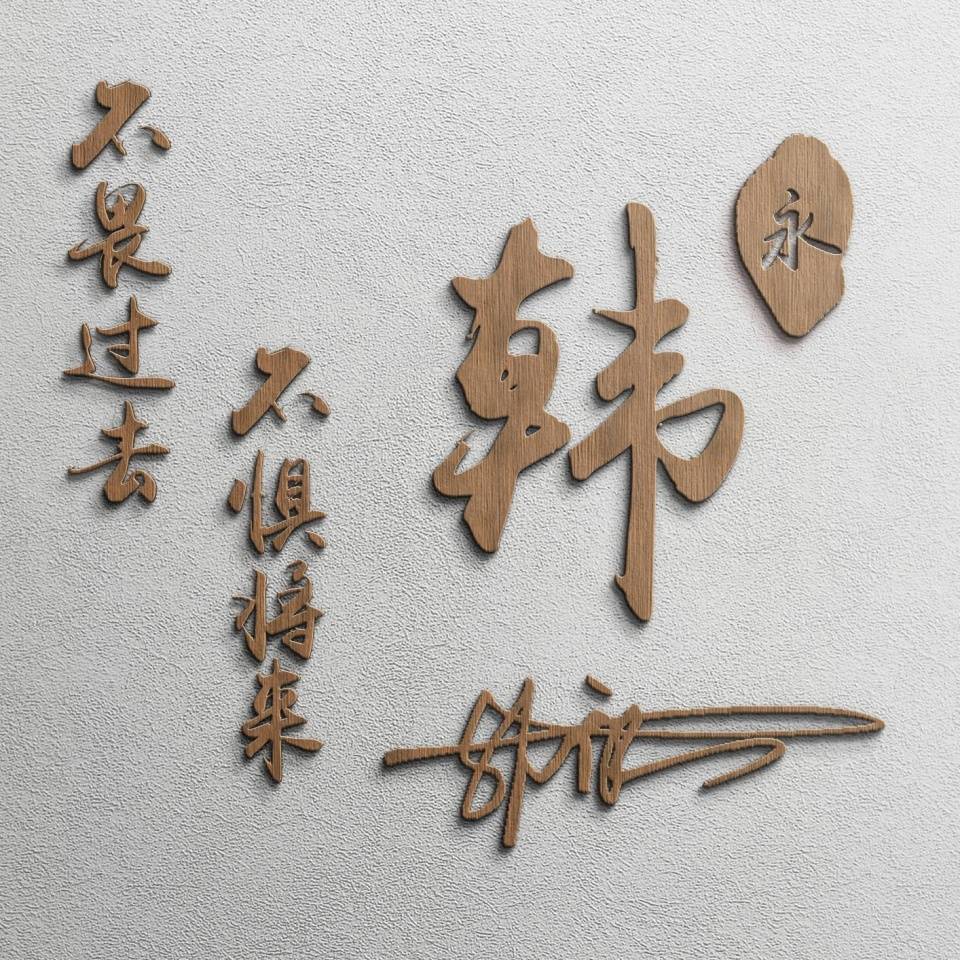 不畏过去
不惧将来
韩
永